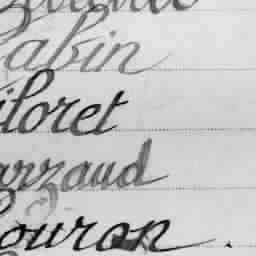 abin
iloret
arzaud
ouron .